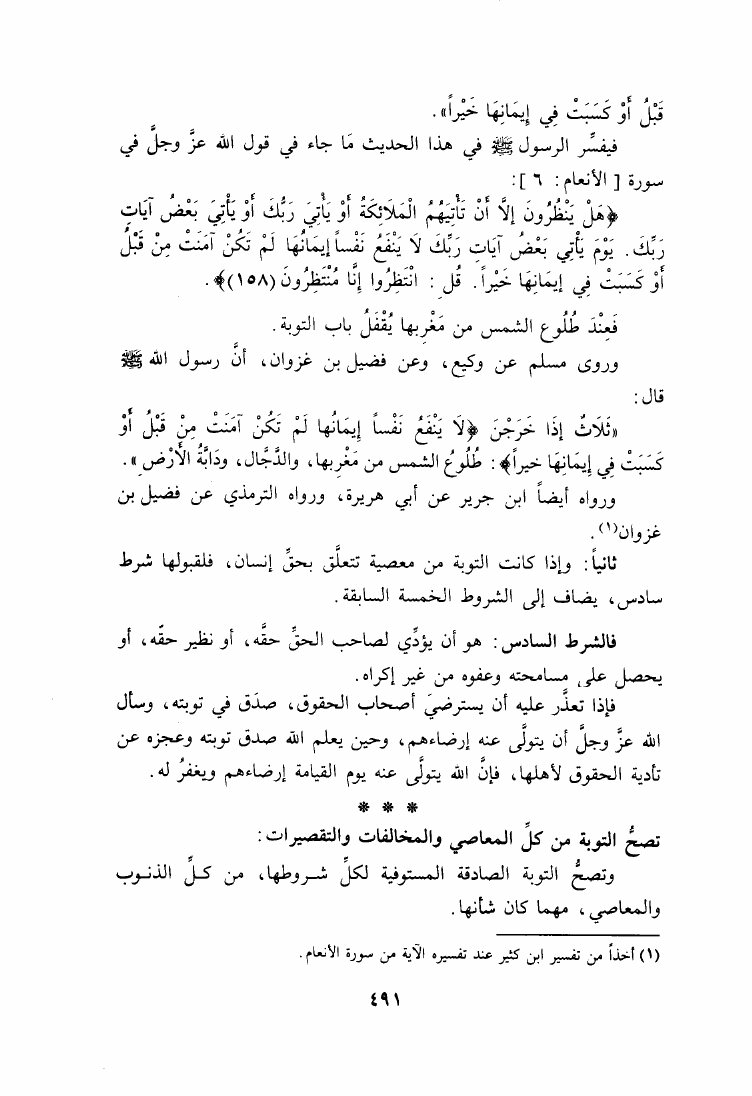 قَبْلُ أَوْ كَسَبَتْ فِي إِيمَانِهَا خَيْراً».
فيفسِّر الرسول ﷺ في هذا الحديث مَا جاء في قول الله عزَّ وجلَّ في
سورة [ الأنعام: ٦ ]:
﴿هَلْ يَنْظُرُونَ إلَّا أَنْ تَأْتِيَهُمُ الْمَلائِكَةُ أَوْ يَأْتِيَ رَبُّكَ أَوْ يَأْتِيَ بَعْضُ آيَاتِ
رَبِّكَ. يَوْمَ يَأْتِي بَعْضُ آيَاتِ رَبِّكَ لَا يَنْفَعُ نَفْساً إيمَانُهَا لَمْ تَكُنْ آمَنَتْ مِنْ قَبْلُ
أَوْ كَسَبَتْ فِي إيمَانِهَا خَيْراً. قُل : انْتَظِرُوا إِنَّا مُنْتَظِرُونَ (١٥٨)﴾.
فَعِنْدَ طُلُوعِ الشمس من مَغْرِبها يُقْفَلُ باب التوبة.
وروى مسلم عن وكيع، وعن فضيل بن غزوان، أنَّ رسول الله ﷺ
قال:
«ثَلَاثٌ إذَا خَرَجْنَ ﴿لَا يَنْفَعُ نَفْساً إيمَانُها لَمْ تَكُنْ آمَنَتْ مِنْ قَبْلُ أَوْ
كَسَبَتْ فِي إيمَانِهَا خيراً﴾: طُلُوعُ الشمس من مَغْرِبها، والدَّجَّال، ودَابَّةُ الأرْضِ».
ورواه أيضاً ابن جرير عن أبي هريرة، ورواه الترمذي عن فضيل بن
غزوان(١).
ثانياً: وإذا كانت التوبة من معصية تتعلَّق بحقِّ إنسان، فلقبولها شرط
سادس، يضاف إلى الشروط الخمسة السابقة.
فالشرط السادس: هو أن يؤدِّي لصاحب الحقِّ حقَّه، أو نظير حقّه، أو
يحصل على مسامحته وعفوه من غير إكراه.
فإذا تعذَّر عليه أن يسترضيَ أصحاب الحقوق، صدَق في توبته، وسأل
الله عزَّ وجلَّ أن يتولَّى عنه إرضاءهم، وحين يعلم الله صدق توبته وعجزه عن
تأدية الحقوق لأهلها، فإنَّ الله يتولَّى عنه يوم القيامة إرضاءهم ويغفرُ له.
* * *
تصحُّ التوبة من كلِّ المعاصي والمخالفات والتقصيرات:
وتصحُّ التوبة الصادقة المستوفية لكلِّ شروطها، من كلِّ الذنوب
والمعاصي، مهما كان شأنها.
(١) أخذاً من تفسير ابن كثير عند تفسيره الآية من سورة الأنعام.
٤٩١